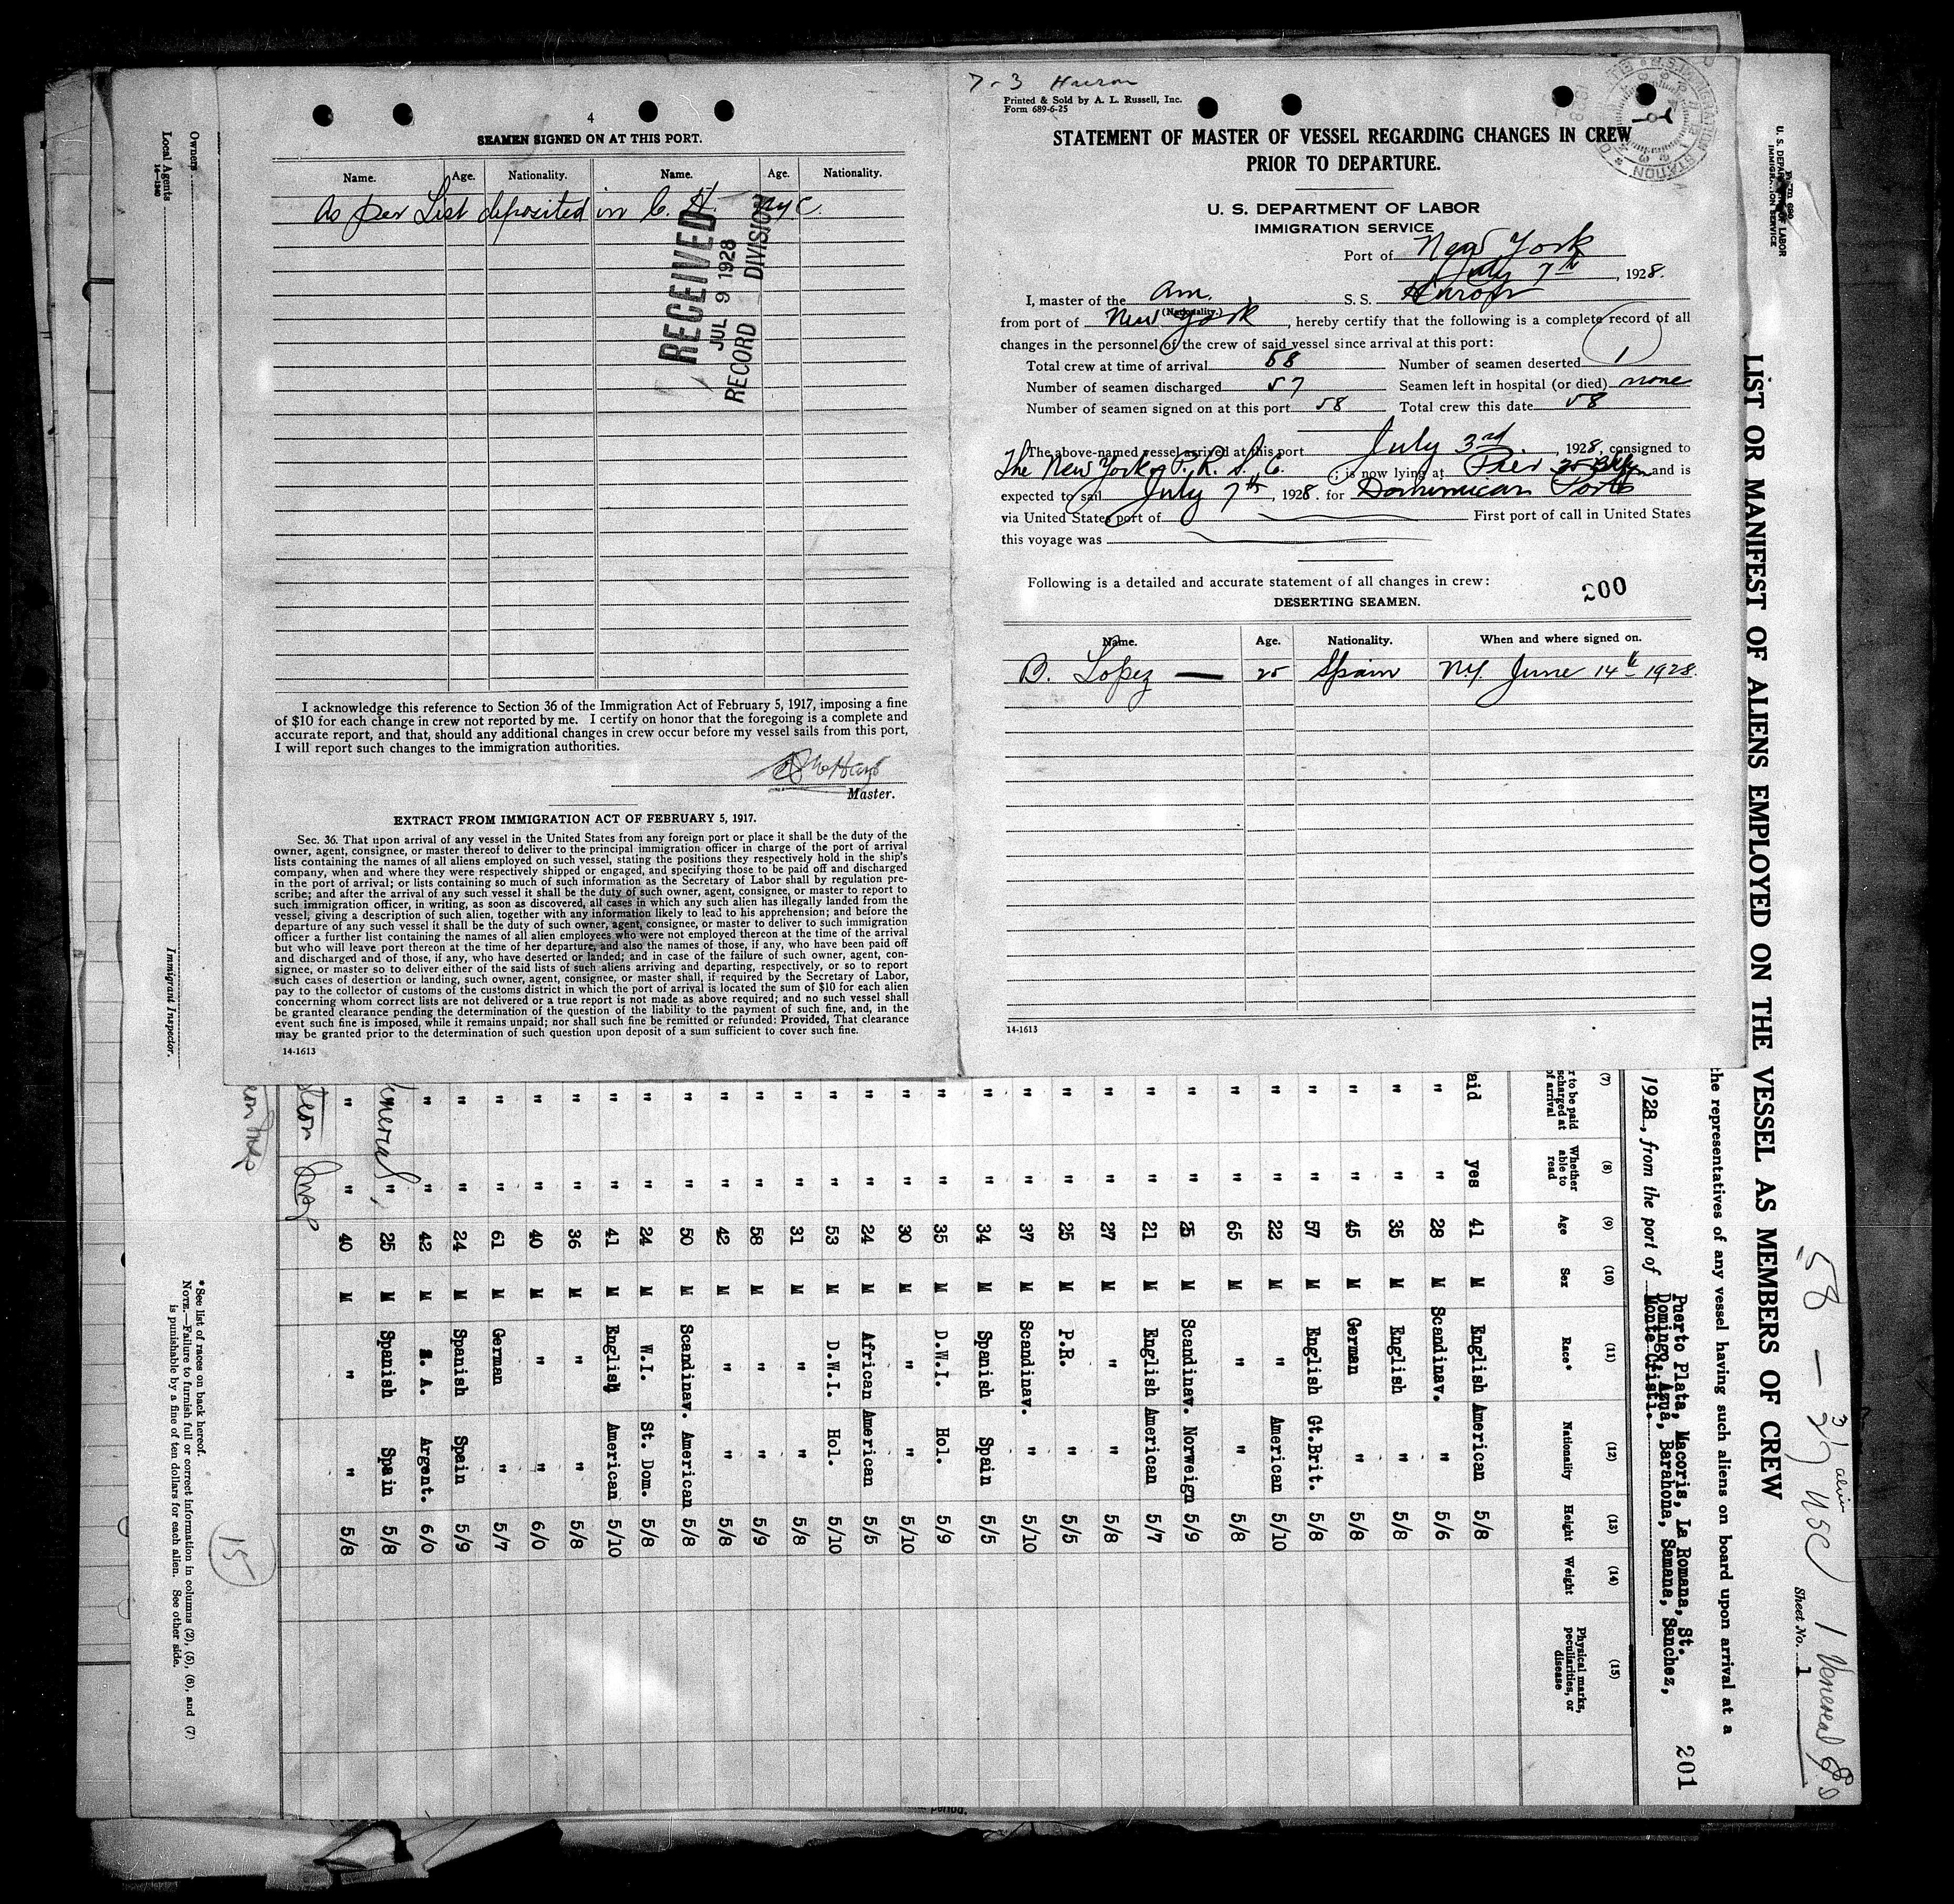 4
SEAMEN SIGNED ON AT THIS PORT.
Name. Age. Nationality. Name. Age. Nationality.
As per List deposited in C. H. NYC.
RECEIVED
JUL 9 1928
RECORD DIVISION
I acknowledge this reference to Section 36 of the Immigration Act of February 5, 1917, imposing a fine
of $10 for each change in crew not reported by me. I certify on honor that the foregoing is a complete and
accurate report, and that, should any additional changes in crew occur before my vessel sails from this port,
I will report such changes to the immigration authorities.
Master.
EXTRACT FROM IMMIGRATION ACT OF FEBRUARY 5, 1917.
Sec. 36. That upon arrival of any vessel in the United States from any foreign port or place it shall be the duty of the
owner, agent, consignee, or master thereof to deliver to the principal immigration officer in charge of the port of arrival
lists containing the names of all aliens employed on such vessel, stating the positions they respectively hold in the ship's
company, when and where they were respectively shipped or engaged, and specifying those to be paid off and discharged
in the port of arrival; or lists containing so much of such information as the Secretary of Labor shall by regulation pre-
scribe; and after the arrival of any such vessel it shall be the duty of such owner, agent, consignee, or master to report to
such immigration officer, in writing, as soon as discovered, all cases in which any such alien has illegally landed from the
vessel, giving a description of such alien, together with any information likely to lead to his apprehension; and before the
departure of any such vessel it shall be the duty of such owner, agent, consignee, or master to deliver to such immigration
officer a further list containing the names of all alien employees who were not employed thereon at the time of the arrival
but who will leave port thereon at the time of her departure, and also the names of those, if any, who have been paid off
and discharged and of those, if any, who have deserted or landed; and in case of the failure of such owner, agent, con-
signee, or master so to deliver either of the said lists of such aliens arriving and departing, respectively, or so to report
such cases of desertion or landing, such owner, agent, consignee, or master shall, if required by the Secretary of Labor,
pay to the collector of customs of the customs district in which the port of arrival is located the sum of $10 for each alien
concerning whom correct lists are not delivered or a true report is not made as above required; and no such vessel shall
be granted clearance pending the determination of the question of the liability to the payment of such fine, and, in the
event such fine is imposed, while it remains unpaid; nor shall such fine be remitted or refunded: Provided, That clearance
may be granted prior to the determination of such question upon deposit of a sum sufficient to cover such fine.
14-1613
7-3 Huron
Printed & Sold by A. L. Russell, Inc.
Form 689-6-25
STATEMENT OF MASTER OF VESSEL REGARDING CHANGES IN CREW
PRIOR TO DEPARTURE.
U. S. DEPARTMENT OF LABOR
IMMIGRATION SERVICE
Port of New York
July 7th, 1928.
I, master of the Am. S. S. Huron
(Nationality.)
from port of New York, hereby certify that the following is a complete record of all
changes in the personnel of the crew of said vessel since arrival at this port:
Total crew at time of arrival 58 Number of seamen deserted 1
Number of seamen discharged 57 Seamen left in hospital (or died) none
Number of seamen signed on at this port 58 Total crew this date 58
The above-named vessel arrived at this port July 3rd, 1928, consigned to
The New York & P. R. S. C.; is now lying at Pier 35 Bklyn and is
expected to sail July 7th, 1928. for Dominican Ports
via United States port of First port of call in United States
this voyage was
Following is a detailed and accurate statement of all changes in crew:
200
DESERTING SEAMEN.
Name. Age. Nationality. When and where signed on.
B. Lopez 25 Spain N.Y. June 14th 1928.
14-1613
U. S. DEPARTMENT OF LABOR
IMMIGRATION SERVICE
LIST OR MANIFEST OF ALIENS EMPLOYED ON THE VESSEL AS MEMBERS OF CREW
58 — USC 1 Venereal
Sheet No. 1
the representatives of any vessel having such aliens on board upon arrival at a
1928, from the port of Puerto Plata, Macoris, La Romana, St.
Domingo, Azua, Barahona, Samana, Sanchez,
Monte Cristi.
201
(7) (8) (9) (10) (11) (12) (13) (14) (15)
r to be paid scharged at of arrival Whether able to read Age Sex Race* Nationality Height Weight Physical marks, peculiarities, or disease
aid yes 41 M English American 5/8
" " 28 M Scandinav. " 5/6
" " 35 M English " 5/8
" " 45 M German " 5/8
" " 57 M English Gt.Brit. 5/8
" " 22 M " American 5/10
" " 65 M " " 5/8
" " 25 M Scandinav. Norweign 5/9
" " 21 M English American 5/7
" " 27 M " " 5/8
" " 25 M P.R. " 5/5
" " 37 M Scandinav. " 5/10
" " 34 M Spanish Spain 5/5
" " 35 M D.W.I. Hol. 5/9
" " 30 M " " 5/10
" " 24 M African American 5/5
" " 53 M D.W.I. Hol. 5/10
" " 31 M " " 5/8
" " 58 M " " 5/9
" " 42 M " " 5/8
" " 50 M Scandinav. American 5/8
" " 24 M W.I. St. Dom. 5/8
" " 41 M English American 5/10
" " 36 M " " 5/8
" " 40 M " " 6/0
" " 61 M German " 5/7
" " 24 M Spanish Spain 5/9
" " 42 M S. A. Argent. 6/0
" " 25 M Spanish Spain 5/8
" " 40 M " " 5/8
15
*See list of races on back hereof.
NOTE.—Failure to furnish full or correct information in columns (2), (5), (6), and (7)
is punishable by a fine of ten dollars for each alien. See other side.
Owners
Local Agents
14-1240
Immigrant Inspector.